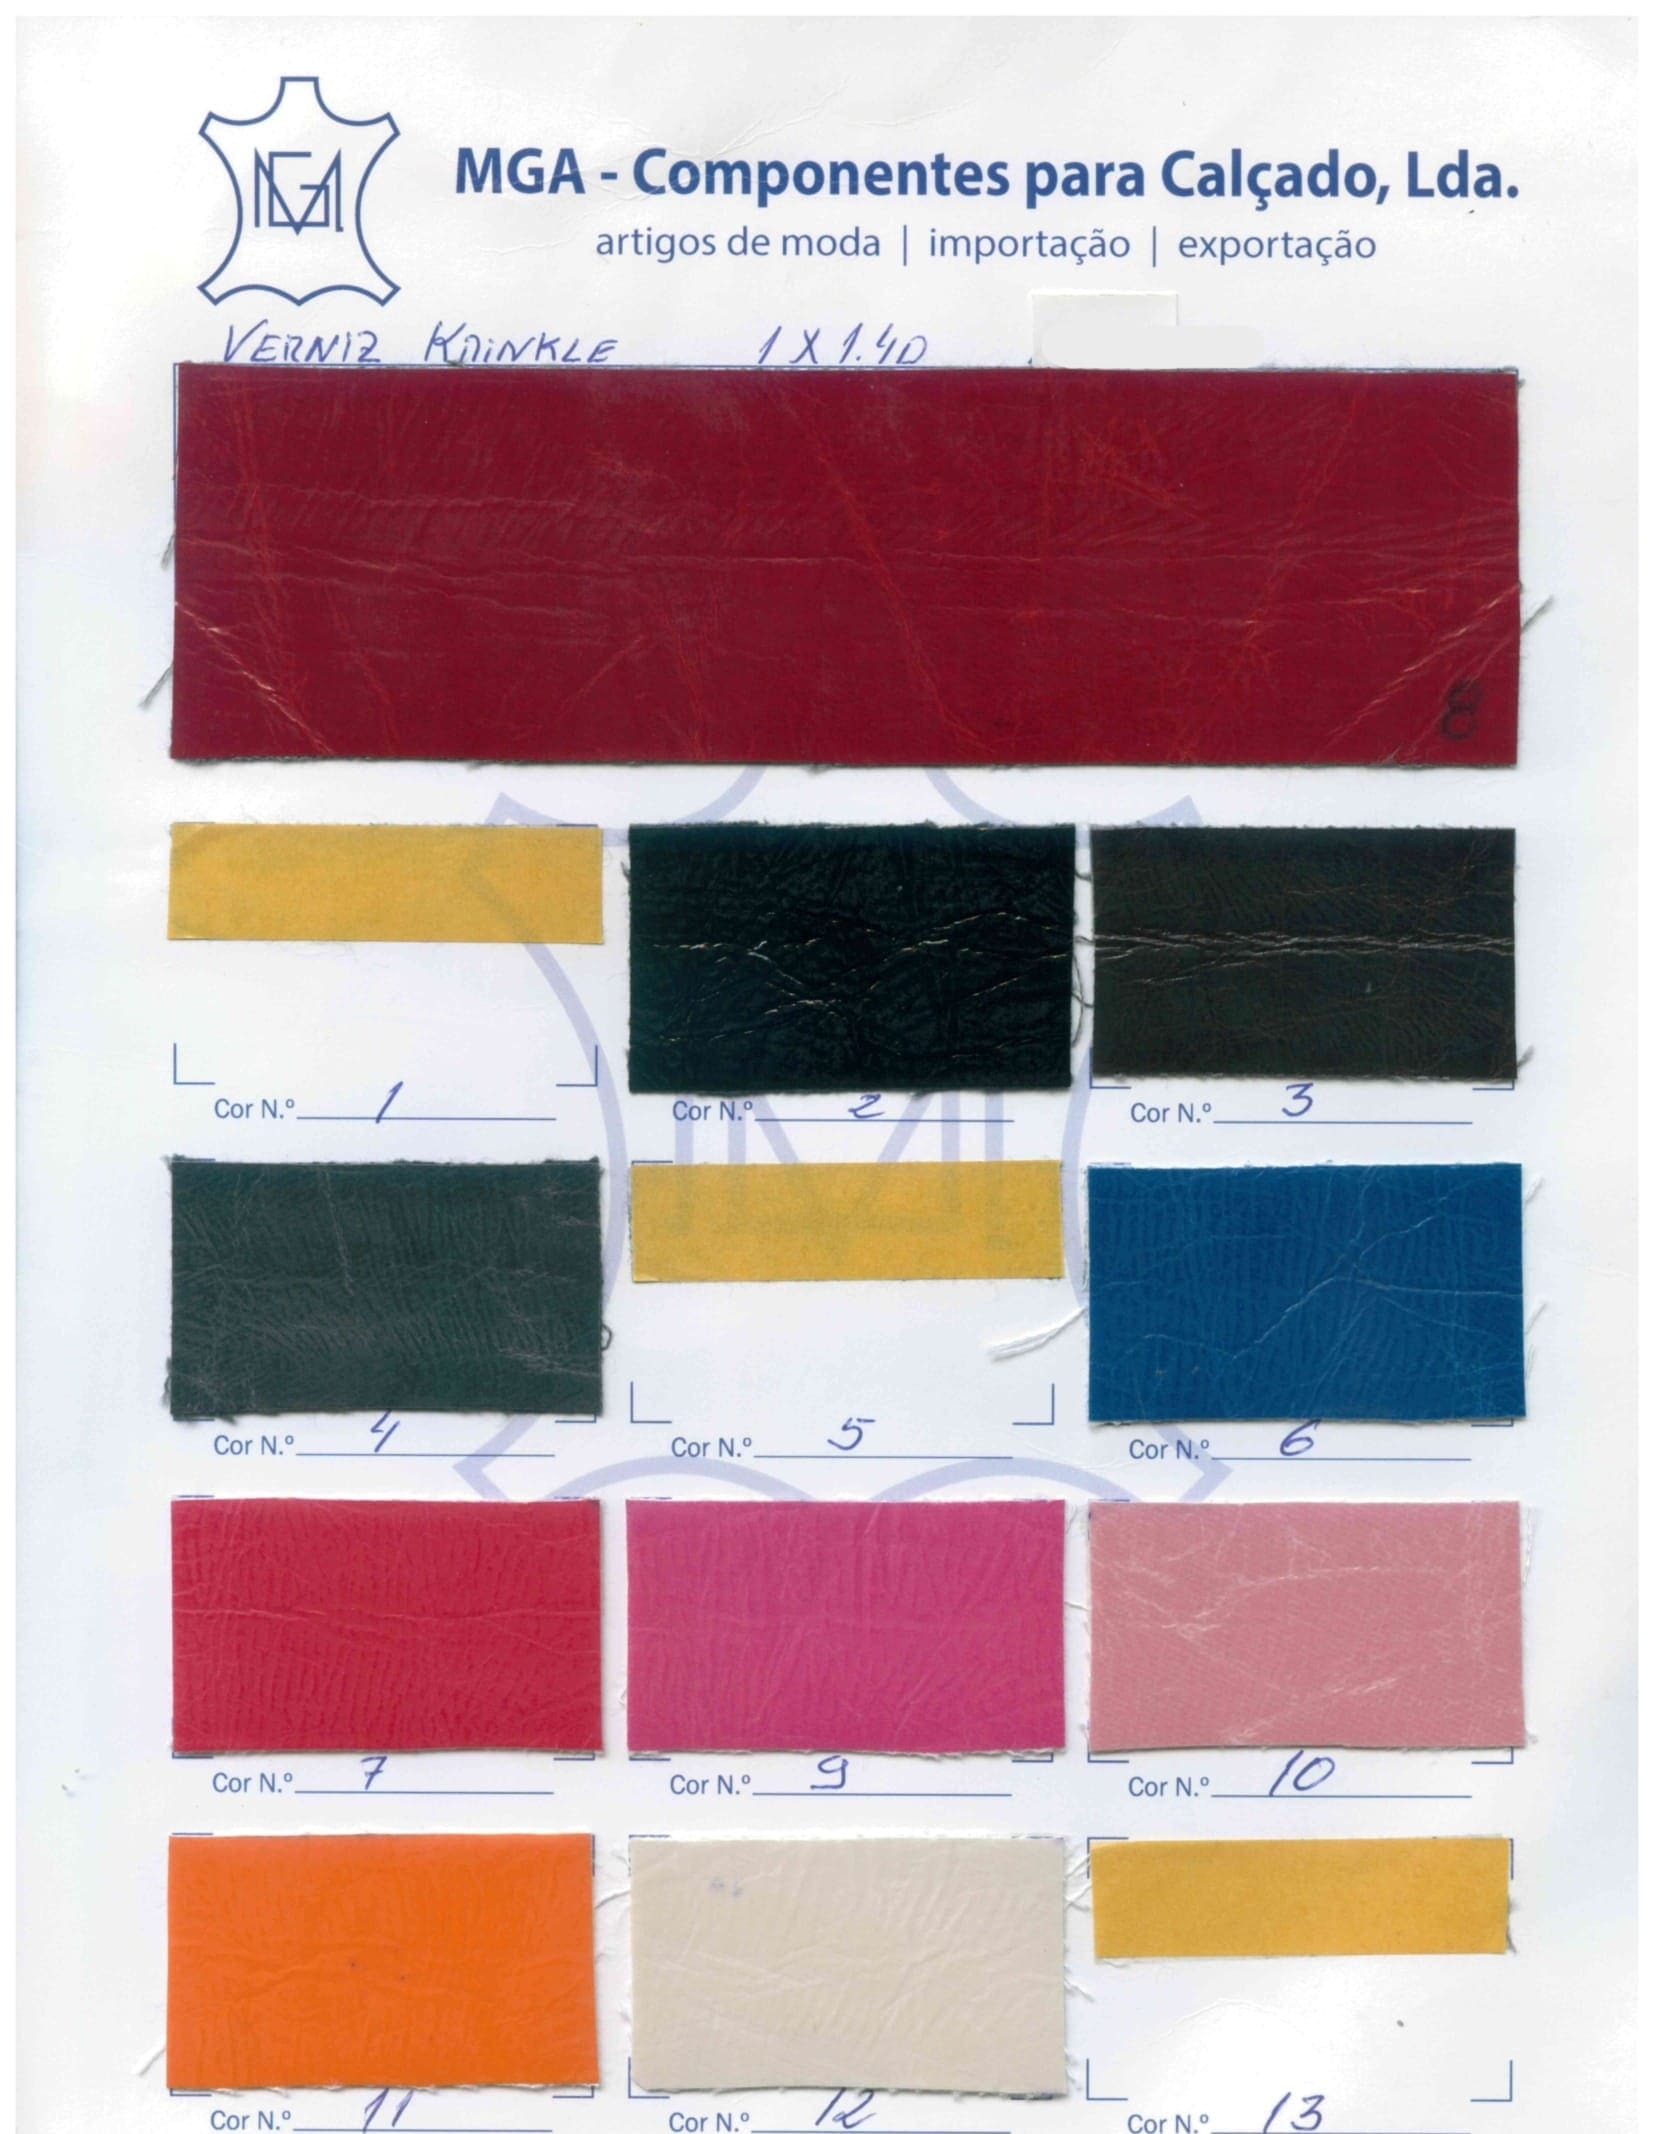 MGA
MGA - Componentes para Calçado, Lda.
artigos de moda | importação | exportação
VERNIZ KRINKLE 1 X 1.40
8
Cor N.º 1
Cor N.º 2
Cor N.º 3
Cor N.º 4
Cor N.º 5
Cor N.º 6
Cor N.º 7
Cor N.º 9
Cor N.º 10
Cor N.º 11
Cor N.º 12
Cor N.º 13